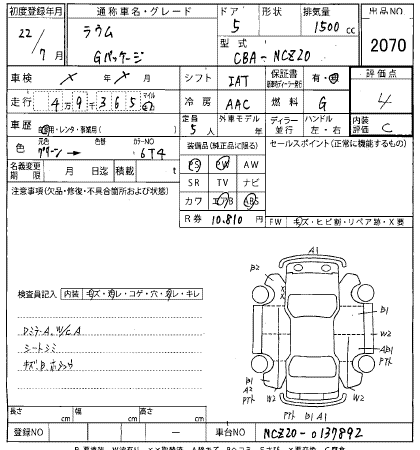 初度登録年月 通称車名・グレード ドア 形状 排気量 出品NO.
22/7月 ラウム Gパッケージ 5 1500 cc 2070
型式 CBA-NCZ20
車検 X年X月 シフト IAT 保証書 有・無 評価点 4
走行 49365 マイル km 冷房 AAC 燃料 G
車歴 自家用・レンタ・事業用( ) 定員 5人 外車モデル 年 ディラー 並行 ハンドル 左・右 内装評価 C
色 元色 グリーン → 色替 カラーNO 6T4
装備品(純正品に限る) セールスポイント(正常に機能するもの)
PS PW AW
名義変更期限 月 日迄 積載
SR TV ナビ
注意事項(欠品・修復・不具合箇所および状態)
カワ エアB ABS
R券 10.810 円
FW キズ・ヒビ割・リペア跡・X要
検査員記入 内装 キズ・スレ・コゲ・穴・ヨゴレ・キレ
シートシミ
A1
B2
B1
W2
AB1
W2
B2
A2
W2
B1 A1
長さ cm 幅 cm 高さ cm
登録NO 車台NO NCZ20-0137892